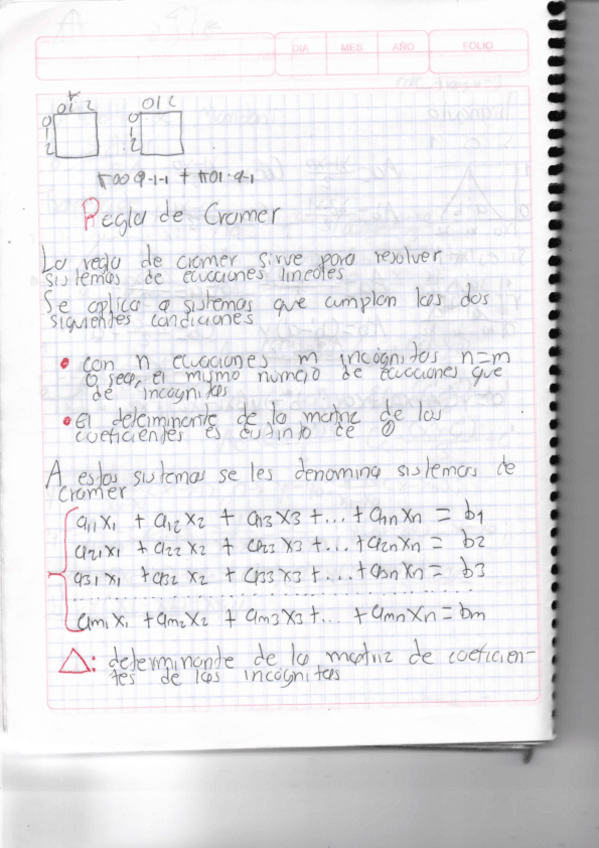 DIA MES AÑO FOLIO
012 012
0 0
1 1
2 2
Regla de Cramer
La regla de cramer sirve para resolver
sistemas de ecuaciones lineales
Se aplica a sistemas que cumplan las dos
siguientes condiciones
• con n ecuaciones m incógnitas n=m
o sea, el mismo numero de ecuaciones que
de incógnitas
• el determinante de la matriz de los
coeficientes es distinto de 0
A estos sistemas se les denomina sistemas de
cramer
a11x1 + a12x2 + a13x3 + ... + a1nxn = b1
a21x1 + a22x2 + a23x3 + ... + a2nxn = b2
a31x1 + a32x2 + a33x3 + ... + a3nxn = b3
am1x1 + am2x2 + am3x3 + ... + amnxn = bm
△: determinante de la matriz de coeficien-
tes de las incógnitas